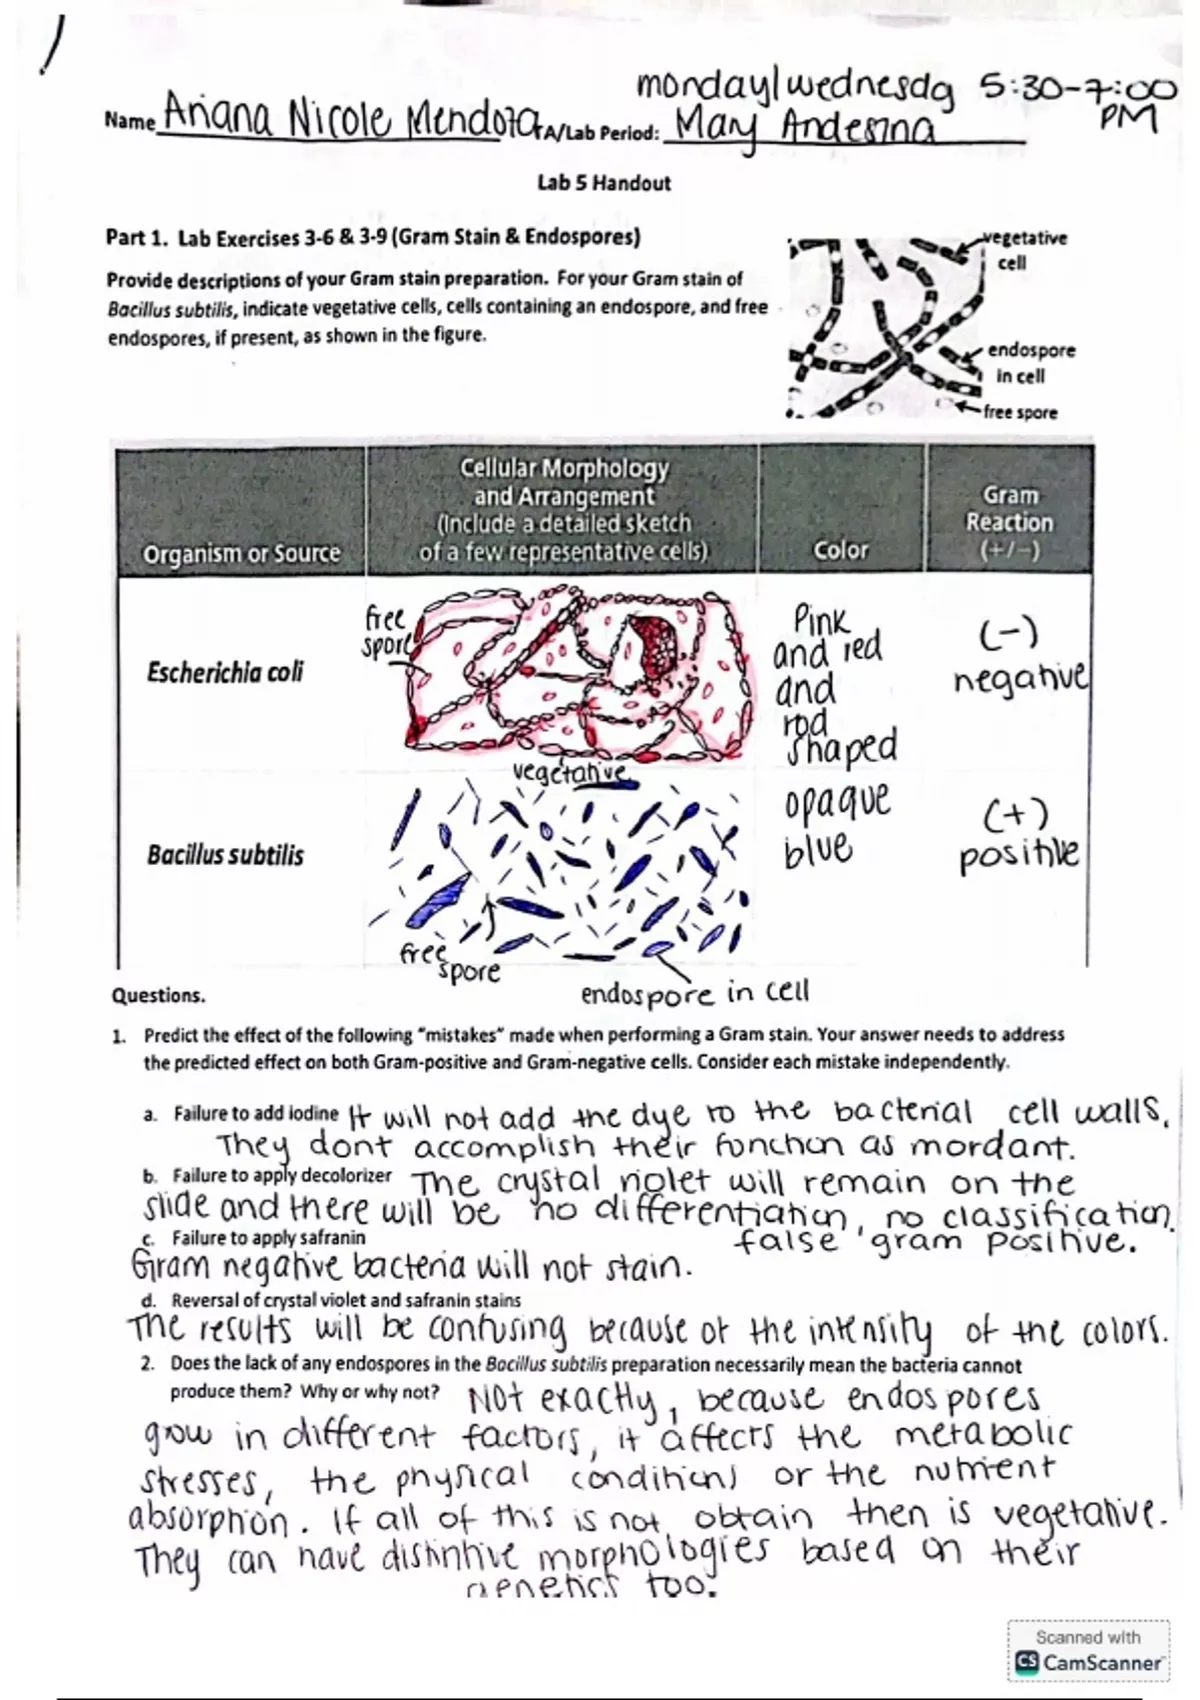 monday|wednesday 5:30-7:00 PM
Name Ariana Nicole Mendoza TA/Lab Period: Mary Andesina
Lab 5 Handout
Part 1. Lab Exercises 3-6 & 3-9 (Gram Stain & Endospores)
Provide descriptions of your Gram stain preparation. For your Gram stain of
Bacillus subtilis, indicate vegetative cells, cells containing an endospore, and free
endospores, if present, as shown in the figure.
vegetative
cell
endospore
in cell
free spore
Organism or Source
Cellular Morphology
and Arrangement
(Include a detailed sketch
of a few representative cells)
Color
Gram
Reaction
(+/−)
Escherichia coli
free
spore
Pink
and red
and
rod
shaped
(-)
negative
vegetative
Bacillus subtilis
free
spore
endospore in cell
opaque
blue
(+)
positive
Questions.
1. Predict the effect of the following "mistakes" made when performing a Gram stain. Your answer needs to address
the predicted effect on both Gram-positive and Gram-negative cells. Consider each mistake independently.
a. Failure to add iodine It will not add the dye to the bacterial cell walls.
They dont accomplish their function as mordant.
b. Failure to apply decolorizer The crystal violet will remain on the
slide and there will be no differentiation, no classification.
c. Failure to apply safranin false gram positive.
Gram negative bacteria will not stain.
d. Reversal of crystal violet and safranin stains
The results will be confusing because of the intensity of the colors.
2. Does the lack of any endospores in the Bacillus subtilis preparation necessarily mean the bacteria cannot
produce them? Why or why not? Not exactly, because endospores
grow in different factors, it affects the metabolic
stresses, the physical conditions or the nutrient
absorption. If all of this is not obtain then is vegetative.
They can have distintive morphologies based on their
genetics too.
Scanned with
CS CamScanner